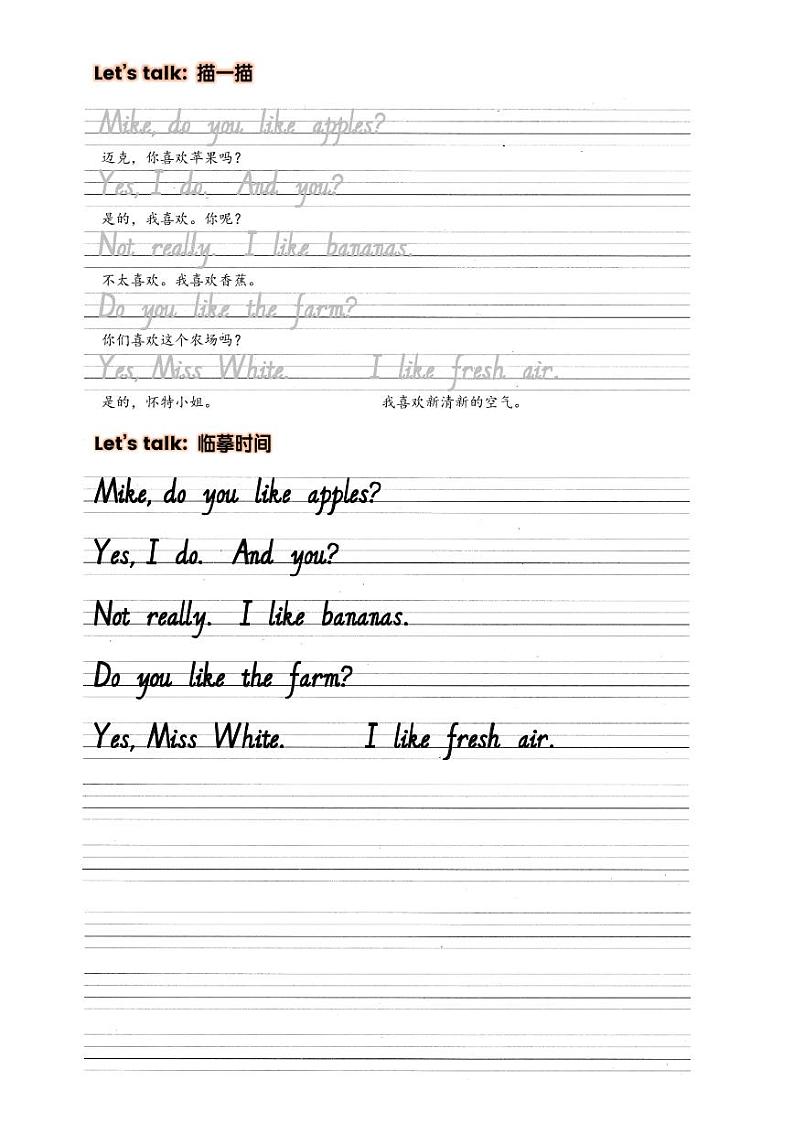 Let's talk: 描一描
Mike, do you like apples?
迈克，你喜欢苹果吗？
Yes, I do. And you?
是的，我喜欢。你呢？
Not really. I like bananas.
不太喜欢。我喜欢香蕉。
Do you like the farm?
你们喜欢这个农场吗？
Yes, Miss White. I like fresh air.
是的，怀特小姐。 我喜欢新清新的空气。
Let's talk: 临摹时间
Mike, do you like apples?
Yes, I do. And you?
Not really. I like bananas.
Do you like the farm?
Yes, Miss White. I like fresh air.